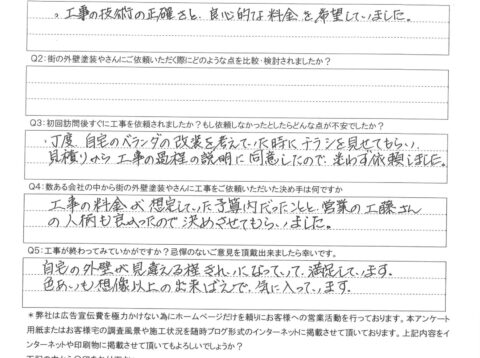 ・工事の技術の正確さと、良心的な料金を希望していました。
Q2:街の外壁塗装やさんにご依頼いただく際にどのような点を比較・検討されましたか？
Q3:初回訪問後すぐに工事を依頼されましたか？もし依頼しなかったとしたらどんな点が不安でしたか？
・丁度、自宅のベランダの改装を考えていた時にチラシを見せてもらい、
見積りから工事の過程の説明に同意したので、迷わず依頼しました。
Q4:数ある会社の中から街の外壁塗装やさんに工事をご依頼いただいた決め手は何ですか
工事の料金が想定していた予算内だったことと、営業の工藤さん
の人柄も良かったので決めさせてもらいました。
Q5:工事が終わってみていかがですか？忌憚のないご意見を頂戴出来ましたら幸いです。
自宅の外壁が見違える様きれいになっていて、満足しています。
色あいも想像以上の出来ばえで、気に入ってます。
＊弊社は広告宣伝費を極力かけない為にホームページだけを頼りにお客様への営業活動を行っております。本アンケート
用紙またはお客様宅の調査風景や施工状況を随時ブログ形式のインターネットに掲載させて頂いております。上記内容をイ
ンターネットや印刷物に掲載させて頂いてもよろしいでしょうか？